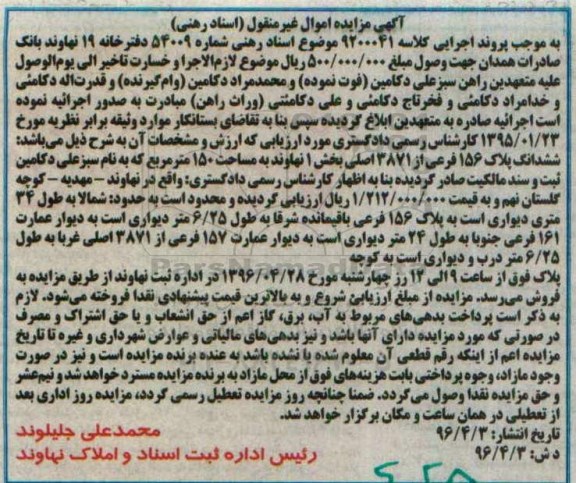 آگهی مزایده اموال غیرمنقول (اسناد رهنی)
به موجب پروند اجرایی کلاسه ۹۲۰۰۰۴۱ موضوع اسناد رهنی شماره ۵۴۰۰۹ دفترخانه ۱۹ نهاوند بانک
صادرات همدان جهت وصول مبلغ ۵۰۰/۰۰۰/۰۰۰ ریال موضوع لازم‌الاجرا و خسارت تاخیر الی یوم‌الوصول
علیه متعهدین راهن سبزعلی دکامین (فوت نموده) و محمدمراد دکامین (وام‌گیرنده) و قدرت‌اله دکامئی
و خدامراد دکامئی و فخرتاج دکامئی و علی دکامئتی (وراث راهن) مبادرت به صدور اجرائیه نموده
است اجرائیه صادره به متعهدین ابلاغ گردیده سپس بنا به تقاضای بستانکار موارد وثیقه برابر نظریه مورخ
۱۳۹۵/۰۱/۲۳ کارشناس رسمی دادگستری مورد ارزیابی که ارزش و مشخصات آن به شرح ذیل می‌باشد:
ششدانگ پلاک ۱۵۶ فرعی از ۳۸۷۱ اصلی بخش ۱ نهاوند به مساحت ۱۵۰ مترمربع که به نام سبزعلی دکامین
ثبت و سند مالکیت صادر گردیده بنا به اظهار کارشناس رسمی دادگستری: واقع در نهاوند – مهدیه – کوچه
گلستان نهم و به قیمت ۱/۲۱۲/۰۰۰/۰۰۰ ریال ارزیابی گردیده و محدود است به حدود: شمالا به طول ۳۴
متری دیواری است به پلاک ۱۵۶ فرعی باقیمانده شرقا به طول ۶/۲۵ متر دیواری است به دیوار عمارت
۱۶۱ فرعی جنوبا به طول ۲۴ متر دیواری است به دیوار عمارت ۱۵۷ فرعی از ۳۸۷۱ اصلی غربا به طول
۶/۲۵ متر درب و دیواری است به کوچه
پلاک فوق از ساعت ۹ الی ۱۲ رز چهارشنبه مورخ ۱۳۹۶/۰۴/۲۸ در اداره ثبت نهاوند از طریق مزایده به
فروش می‌رسد. مزایده از مبلغ ارزیابی شروع و به بالاترین قیمت پیشنهادی نقدا فروخته می‌شود. لازم
به ذکر است پرداخت بدهی‌های مربوط به آب، برق، گاز اعم از حق انشعاب و یا حق اشتراک و مصرف
در صورتی که مورد مزایده دارای آنها باشد و نیز بدهی‌های مالیاتی و عوارض شهرداری و غیره تا تاریخ
مزایده اعم از اینکه رقم قطعی آن معلوم شده یا نشده باشد به عنده برنده مزایده است و نیز در صورت
وجود مازاد، وجوه پرداختی بابت هزینه‌های فوق از محل مازاد به برنده مزایده مسترد خواهد شد و نیم‌عشر
و حق مزایده نقدا وصول می‌گردد. ضمنا چنانچه روز مزایده تعطیل رسمی گردد، مزایده روز اداری بعد
از تعطیلی در همان ساعت و مکان برگزار خواهد شد.
تاریخ انتشار: ۹۶/۴/۳
محمدعلی جلیلوند
د ش: ۹۶/۴/۳
رئیس اداره ثبت اسناد و املاک نهاوند